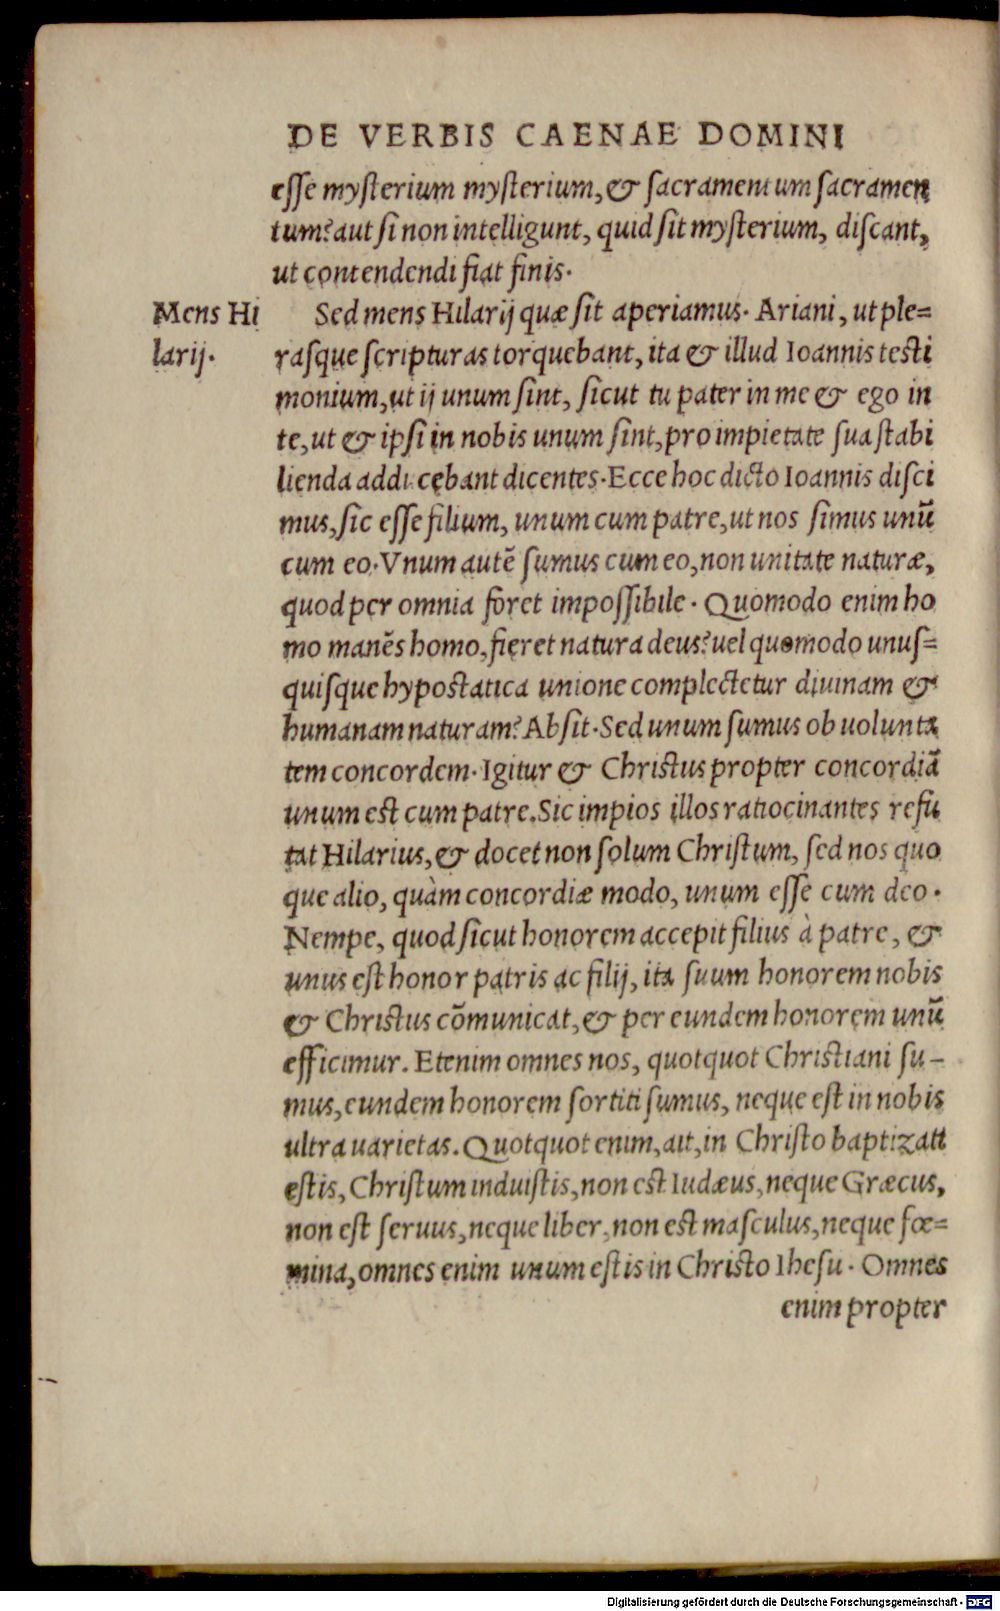 DE VERBIS CAENAE DOMINI
esse mysterium mysterium, & sacramentum sacramen
tum? aut si non intelligunt, quid sit mysterium, discant,
ut contendendi fiat finis.
Mens Hi
larij.
Sed mens Hilarij quæ sit aperiamus. Ariani, ut ple=
rasque scripturas torquebant, ita & illud Ioannis testi
monium, ut ij unum sint, sicut tu pater in me & ego in
te, ut & ipsi in nobis unum sint, pro impietate sua stabi
lienda adducebant dicentes. Ecce hoc dicto Ioannis disci
mus, sic esse filium, unum cum patre, ut nos simus unũ
cum eo. Vnum autẽ sumus cum eo, non unitate naturæ,
quod per omnia foret impossibile. Quomodo enim ho
mo manẽs homo, fieret natura deus? uel quomodo unus=
quisque hypostatica unione complectetur diuinam &
humanam naturam? Absit. Sed unum sumus ob uolunta
tem concordem. Igitur & Christus propter concordiã
unum est cum patre. Sic impios illos ratiocinantes refu
tat Hilarius, & docet non solum Christum, sed nos quo
que alio, quàm concordiæ modo, unum esse cum deo.
Nempe, quod sicut honorem accepit filius à patre, &
unus est honor patris ac filij, ita suum honorem nobis
& Christus cõmunicat, & per eundem honorem unũ
efficimur. Etenim omnes nos, quotquot Christiani su-
mus, eundem honorem sortiti sumus, neque est in nobis
ultra uarietas. Quotquot enim, ait, in Christo baptizati
estis, Christum induistis, non est Iudæus, neque Græcus,
non est seruus, neque liber, non est masculus, neque fœ=
mina, omnes enim unum estis in Christo Ihesu. Omnes
enim propter
Digitalisierung gefördert durch die Deutsche Forschungsgemeinschaft - DFG